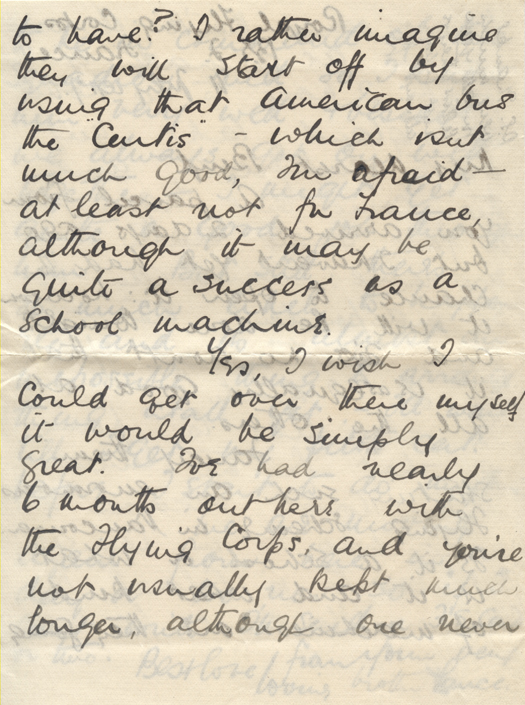 to have? I rather imagine
they will start off by
using that American bus
the "Curtis" - which isnt
much good, I'm afraid -
at least not for France,
although it may be
quite a success as a
School machine.
Yes, I wish I
could get over there myself
it would be simply
great. I've had nearly
6 months out here with
the Flying Corps, and you're
not usually kept much
longer, although one never